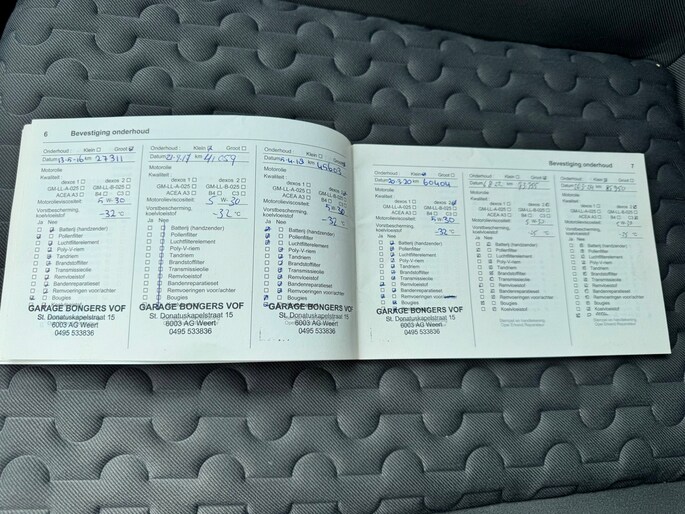 6 Bevestiging onderhoud
Onderhoud: Klein Groot
Datum km 27311
Motorolie
Kwaliteit:
dexos 1 dexos 2
GM-LL-A-025 GM-LL-B-025
ACEA A3 B4 C3
Motorolieviscositeit: 5 W-30
Vorstbescherming, koelvloeistof -32 °C
Ja Nee
Batterij (handzender)
Pollenfilter
Luchtfilterelement
Poly-V-riem
Tandriem
Brandstoffilter
Transmissieolie
Remvloeistof
Bandenreparatieset
Remvoeringen voor/achter
Bougies
GARAGE BONGERS VOF
St. Donatuskapelstraat 15
6003 AG Weert
0495 533836
Onderhoud: Klein Groot
Datum km 41059
Motorolie
Kwaliteit:
dexos 1 dexos 2
GM-LL-A-025 GM-LL-B-025
ACEA A3 B4 C3
Motorolieviscositeit: 5 W-30
Vorstbescherming, koelvloeistof -32 °C
Ja Nee
Batterij (handzender)
Pollenfilter
Luchtfilterelement
Poly-V-riem
Tandriem
Brandstoffilter
Transmissieolie
Remvloeistof
Bandenreparatieset
Remvoeringen voor/achter
Bougies
GARAGE BONGERS VOF
St. Donatuskapelstraat 15
6003 AG Weert
0495 533836
Onderhoud: Klein Groot
Datum km
Motorolie
Kwaliteit:
dexos 1 dexos 2
GM-LL-A-025 GM-LL-B-025
ACEA A3 B4 C3
Motorolieviscositeit: 5W30
Vorstbescherming, koelvloeistof -32 °C
Ja Nee
Batterij (handzender)
Pollenfilter
Luchtfilterelement
Poly-V-riem
Tandriem
Brandstoffilter
Transmissieolie
Remvloeistof
Bandenreparatieset
Remvoeringen voor/achter
Bougies
GARAGE BONGERS VOF
St. Donatuskapelstraat 15
6003 AG Weert
0495 533836
Bevestiging onderhoud 7
Onderhoud: Klein Groot
Datum km 60404
Motorolie
Kwaliteit:
dexos 1 dexos 2
GM-LL-A-025 GM-LL-B-025
ACEA A3 B4 C3
Motorolieviscositeit: 5W30
Vorstbescherming, koelvloeistof -32 °C
Ja Nee
Batterij (handzender)
Pollenfilter
Luchtfilterelement
Poly-V-riem
Tandriem
Brandstoffilter
Transmissieolie
Remvloeistof
Bandenreparatieset
Remvoeringen voor/achter
Bougies
GARAGE BONGERS VOF
St. Donatuskapelstraat 15
6003 AG Weert
0495 533836
Onderhoud: Klein Groot
Datum km
Motorolie
Kwaliteit:
dexos 1 dexos 2
GM-LL-A-025 GM-LL-B-025
ACEA A3 B4 C3
Motorolieviscositeit:
Vorstbescherming, koelvloeistof °C
Ja Nee
Batterij (handzender)
Pollenfilter
Luchtfilterelement
Poly-V-riem
Tandriem
Brandstoffilter
Transmissieolie
Remvloeistof
Bandenreparatieset
Remvoeringen voor/achter
Bougies
Onderhoud: Klein Groot
Datum km
Motorolie
Kwaliteit:
dexos 1 dexos 2
GM-LL-A-025 GM-LL-B-025
ACEA A3 B4 C3
Motorolieviscositeit:
Vorstbescherming, koelvloeistof °C
Ja Nee
Batterij (handzender)
Pollenfilter
Luchtfilterelement
Poly-V-riem
Tandriem
Brandstoffilter
Transmissieolie
Remvloeistof
Bandenreparatieset
Remvoeringen voor/achter
Bougies